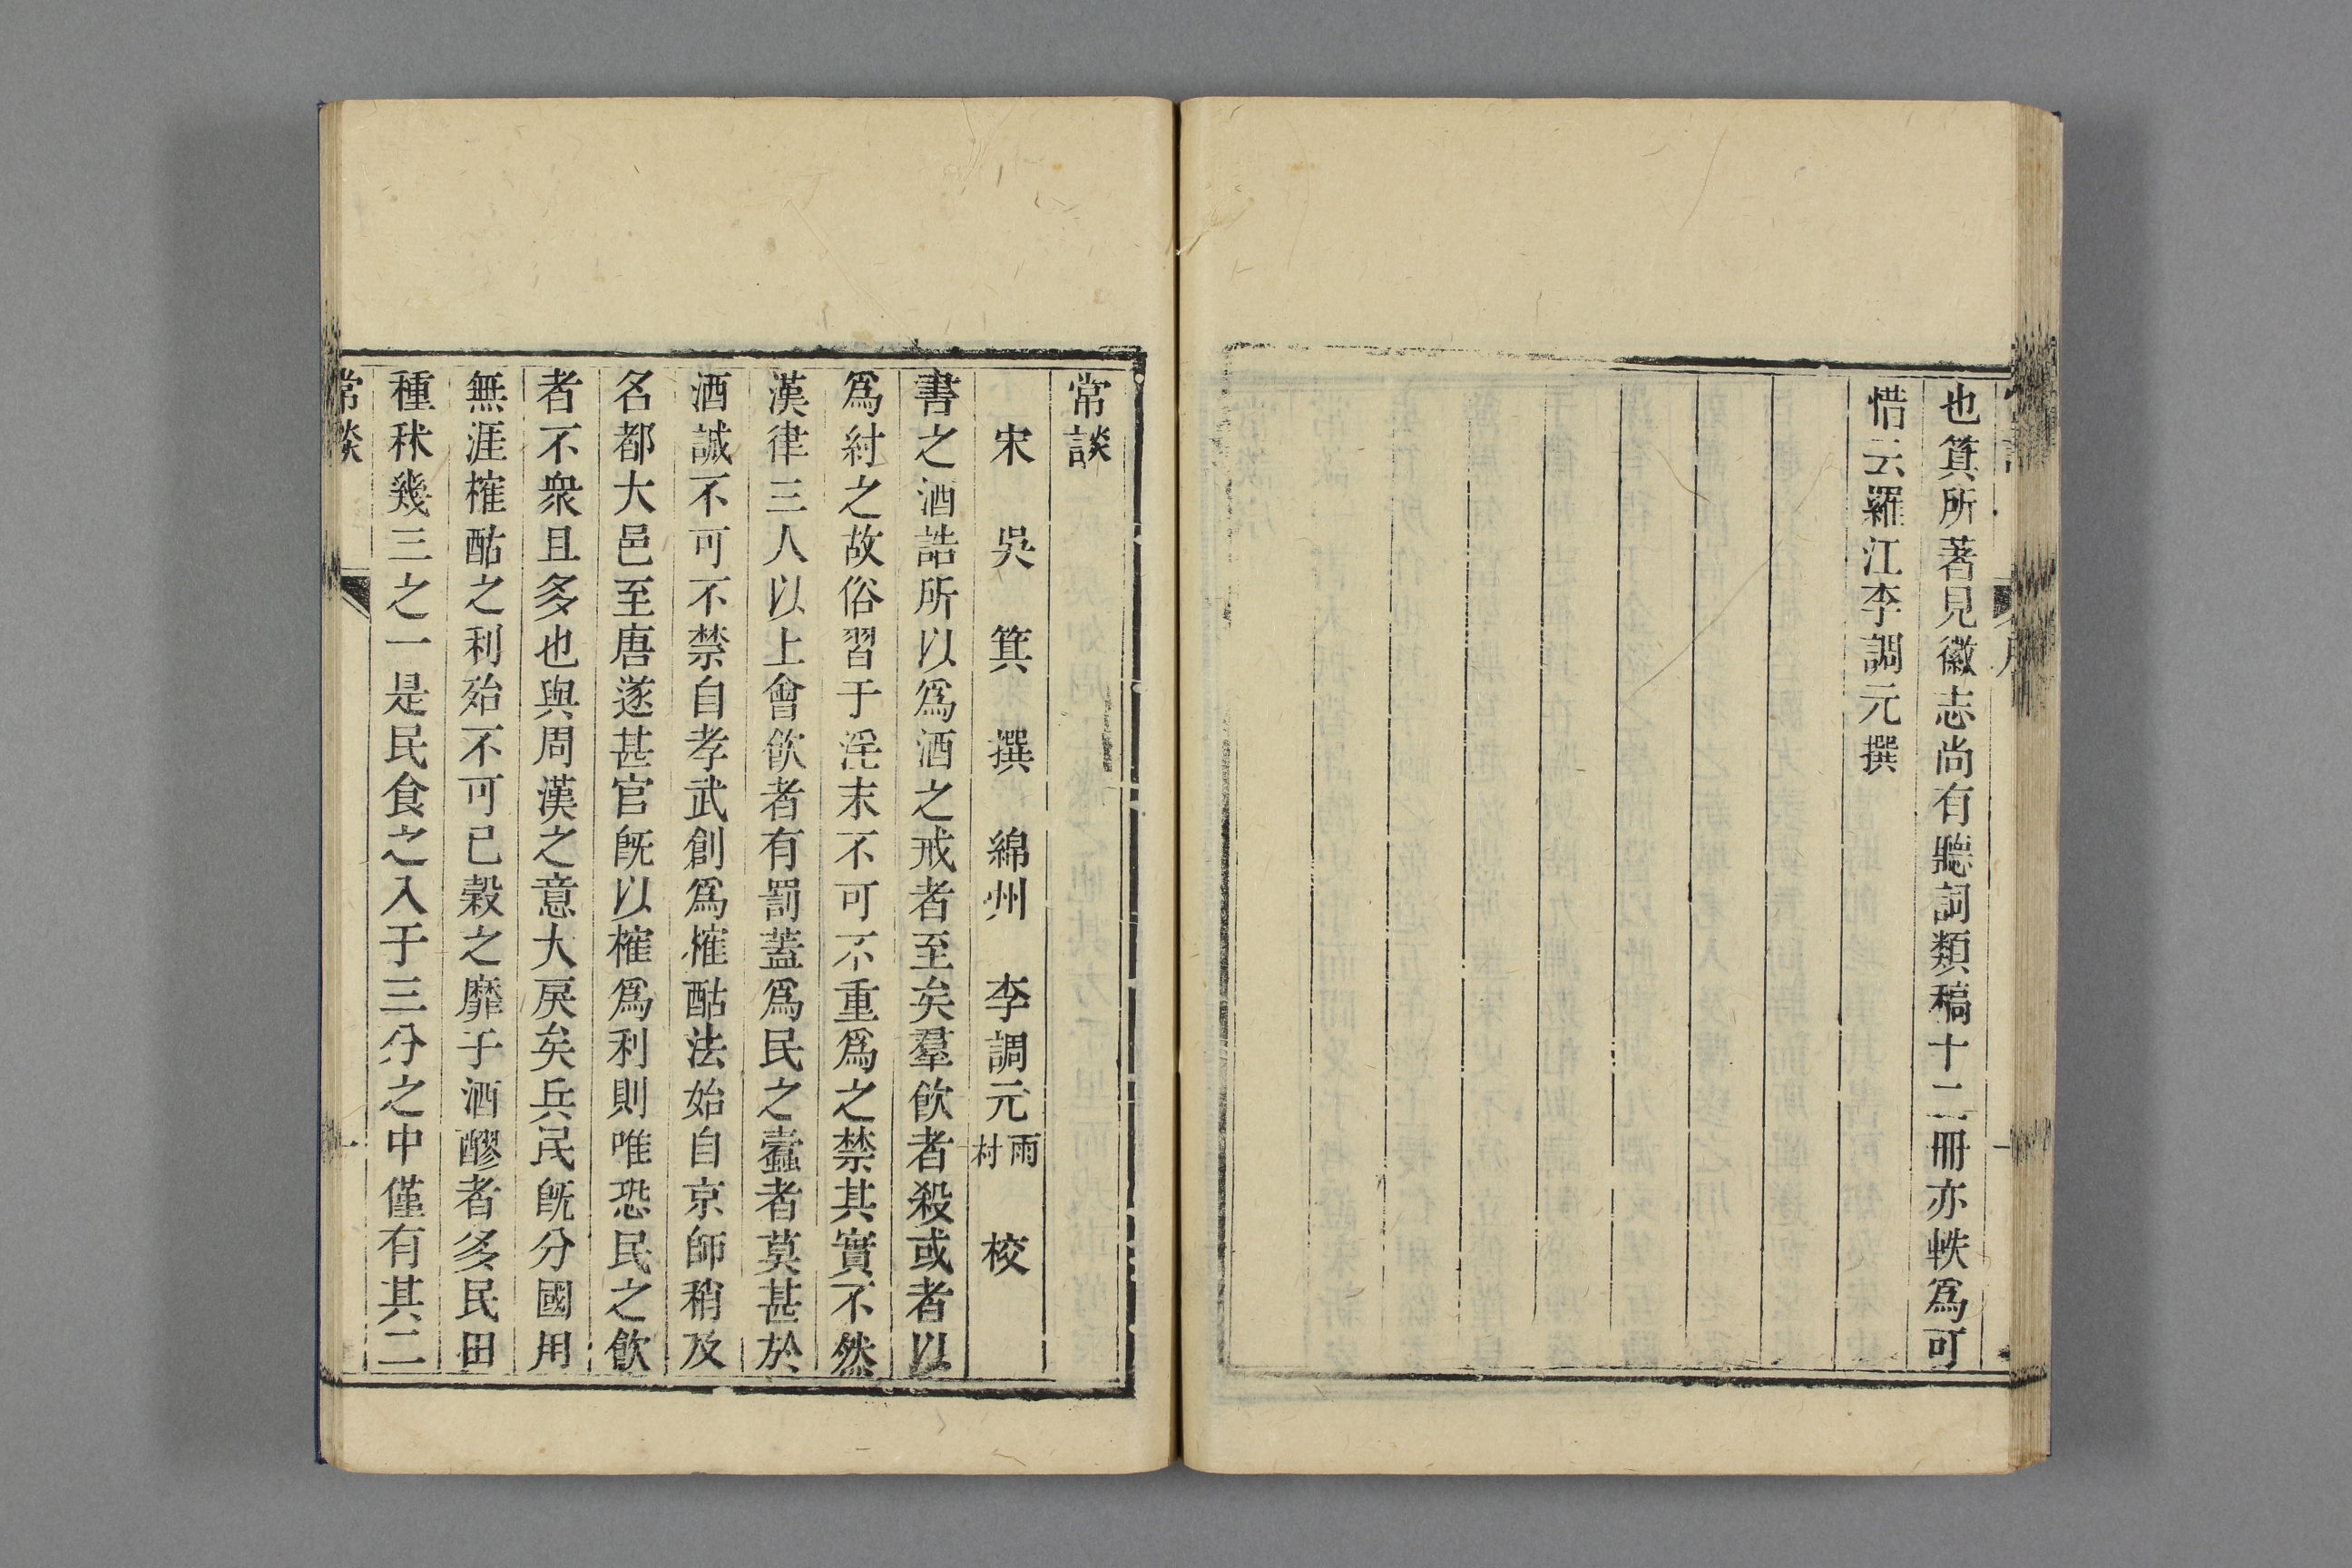 也箕所著見徽志尚有聽詞類稿十二冊亦軼爲可
惜云羅江李調元撰
常談
宋 吳 箕 撰 綿州 李調元 雨村 校
書之酒誥所以爲酒之戒者至矣羣飲者殺或者以
爲紂之故俗習于淫末不可不重爲之禁其實不然
漢律三人以上會飲者有罰蓋爲民之蠹者莫甚於
酒誠不可不禁自孝武創爲榷酤法始自京師稍及
名都大邑至唐遂甚官旣以榷爲利則唯恐民之飲
者不衆且多也與周漢之意大戾矣兵民旣分國用
無涯榷酤之利殆不可已穀之靡于酒醪者多民田
種秫幾三之一是民食之入于三分之中僅有其二
常談
一